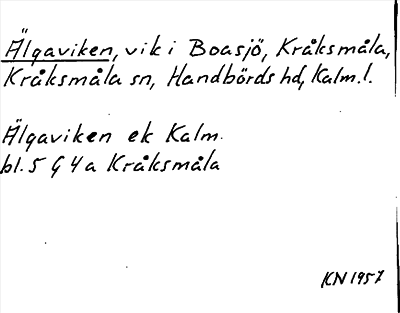 Älgaviken, vik i Boasjö, Kråksmåla,
Kråksmåla sn, Handbörds hd, Kalm. l.
Älgaviken ek Kalm.
bl. 5 G 4 a Kråksmåla
KN 1957